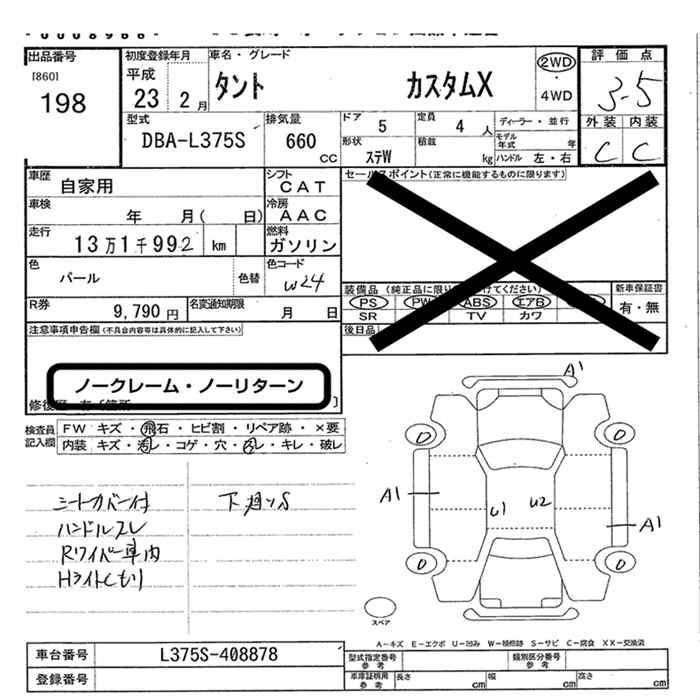 出品番号
[860]
198
初度登録年月
平成
23 2月
車名・グレード
タント カスタムX
2WD
・
4WD
評価点
3.5
外装 内装
C C
型式
DBA-L375S
排気量
660
cc
ドア
5
定員
4 人
ディーラー・並行
形状
ステW
積載
kg
モデル
年式 年
ハンドル 左・右
車歴
自家用
シフト
CAT
車検
年 月( 日)
冷房
AAC
走行
13万1千992 km
燃料
ガソリン
色
パール
色替
色コード
W24
R券
9,790 円
名変通知期限
月 日
セールスポイント(正常に機能するものに限ります)
装備品(純正品に限り けてください)
新車保証書
PS PW ABS エアB
SR TV カワ
有・無
後日品
注意事項申告欄(不具合内容等は具体的に記入して下さい)
ノークレーム・ノーリターン
修復歴
検査員
記入欄
FW キズ・飛石・ヒビ割・リペア跡・×要
内装 キズ・汚レ・コゲ・穴・スレ・キレ・破レ
シートカバー付
ハンドルスレ
Rワイパー車内
Hライトくもり
下廻りS
A1
A1
A1
U1
U2
スペア
A-キズ E-エクボ U-凹み W-補修跡 S-サビ C-腐食 XX-交換済
車台番号
L375S-408878
登録番号
型式指定番号
参考
類別区分番号
参考
車庫証明用
参考
長さ cm
幅 cm
高さ cm